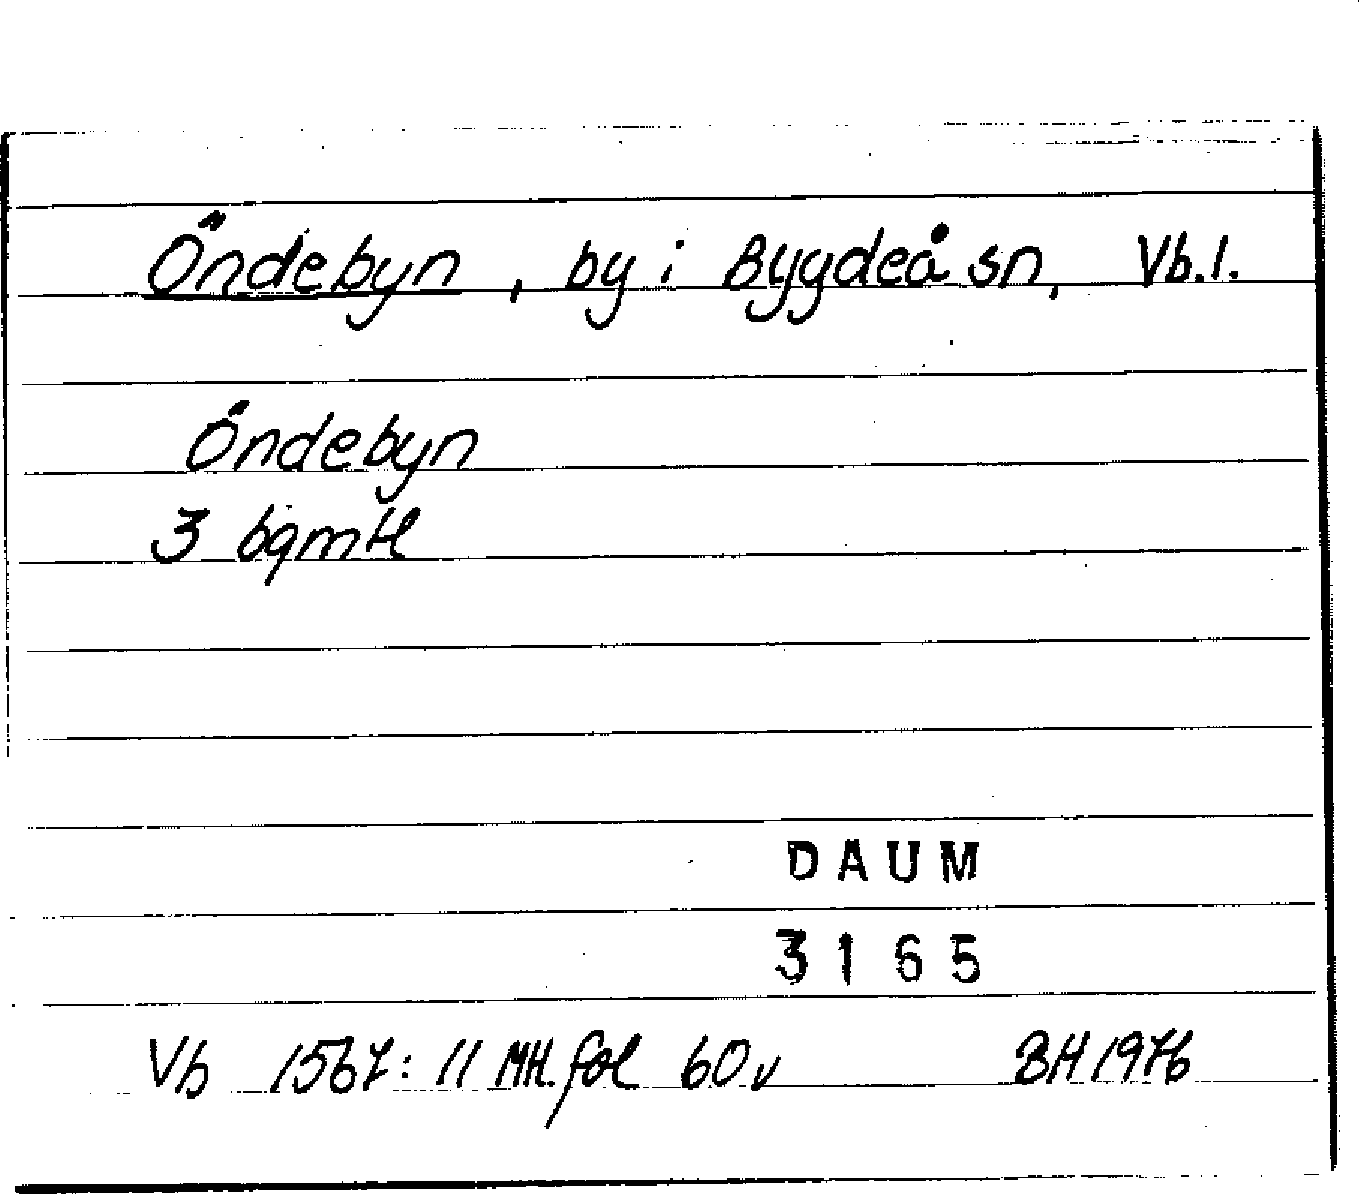 Öndebyn, by i Bygdeå sn, Vb.l.
Öndebyn
3 bgmtl
DAUM
3165
Vb 1567: 11 MH. fol 60v BH 1976